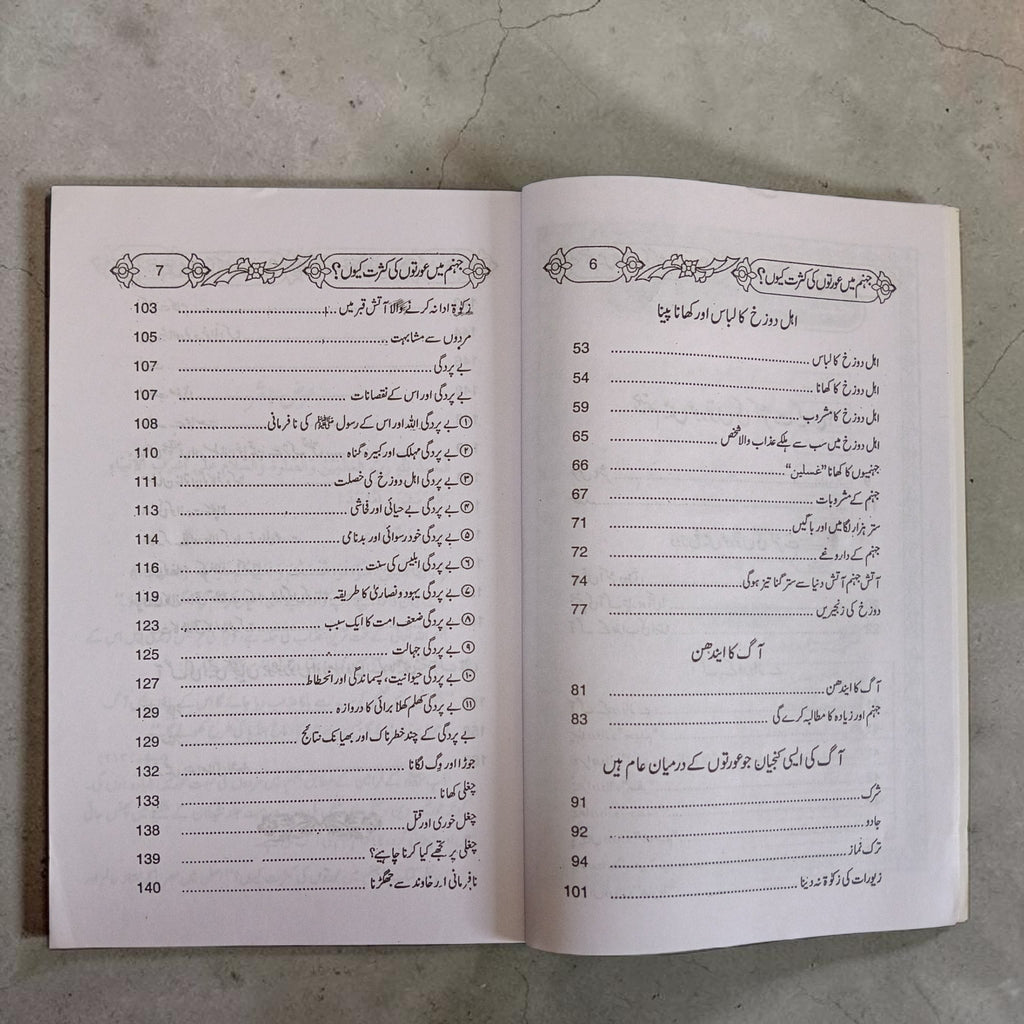 جہنم میں عورتوں کی کثرت کیوں؟ 6
اہل دوزخ کا لباس اور کھانا پینا
اہل دوزخ کا لباس ........ 53
اہل دوزخ کا کھانا ........ 54
اہل دوزخ کا مشروب ........ 59
اہل دوزخ میں سب سے ہلکے عذاب والا شخص ........ 65
جہنمیوں کا کھانا ”غسلین“ ........ 66
جہنم کے مشروبات ........ 67
ستر ہزار لگامیں اور باگیں ........ 71
جہنم کے داروغے ........ 72
آتش جہنم آتش دنیا سے ستر گنا تیز ہوگی ........ 74
دوزخ کی زنجیریں ........ 77
آگ کا ایندھن
آگ کا ایندھن ........ 81
جہنم اور زیادہ کا مطالبہ کرے گی ........ 83
آگ کی ایسی کنجیان جو عورتوں کے درمیان عام ہیں
شرک ........ 91
جادو ........ 92
ترک نماز ........ 94
زیورات کی زکوۃ نہ دینا ........ 101
جہنم میں عورتوں کی کثرت کیوں؟ 7
زکوۃ ادا نہ کرنے والا آتش قبر میں ........ 103
مردوں سے مشابہت ........ 105
بے پردگی ........ 107
بے پردگی اور اس کے نقصانات ........ 107
① بے پردگی اللہ اور اس کے رسول ﷺ کی نافرمانی ........ 108
② بے پردگی مہلک اور کبیرہ گناہ ........ 110
③ بے پردگی اہل دوزخ کی خصلت ........ 111
④ بے پردگی بے حیائی اور فاشی ........ 113
⑤ بے پردگی خود رسوائی اور بدنامی ........ 114
⑥ بے پردگی ابلیس کی سنت ........ 116
⑦ بے پردگی یہود و نصاریٰ کا طریقہ ........ 119
⑧ بے پردگی ضعف امت کا ایک سبب ........ 123
⑨ بے پردگی جہالت ........ 125
⑩ بے پردگی حیوانیت، پسماندگی اور انحطاط ........ 127
⑪ بے پردگی کھلم کھلا برائی کا دروازہ ........ 129
بے پردگی کے چند خطرناک اور بھیانک نتائج ........ 129
جوڑا اور وگ لگانا ........ 132
چغلی کھانا ........ 133
چغل خوری اور قتل ........ 138
چغلی پر تجھے کیا کرنا چاہیے؟ ........ 139
نافرمانی اور خاوند سے جھگڑنا ........ 140